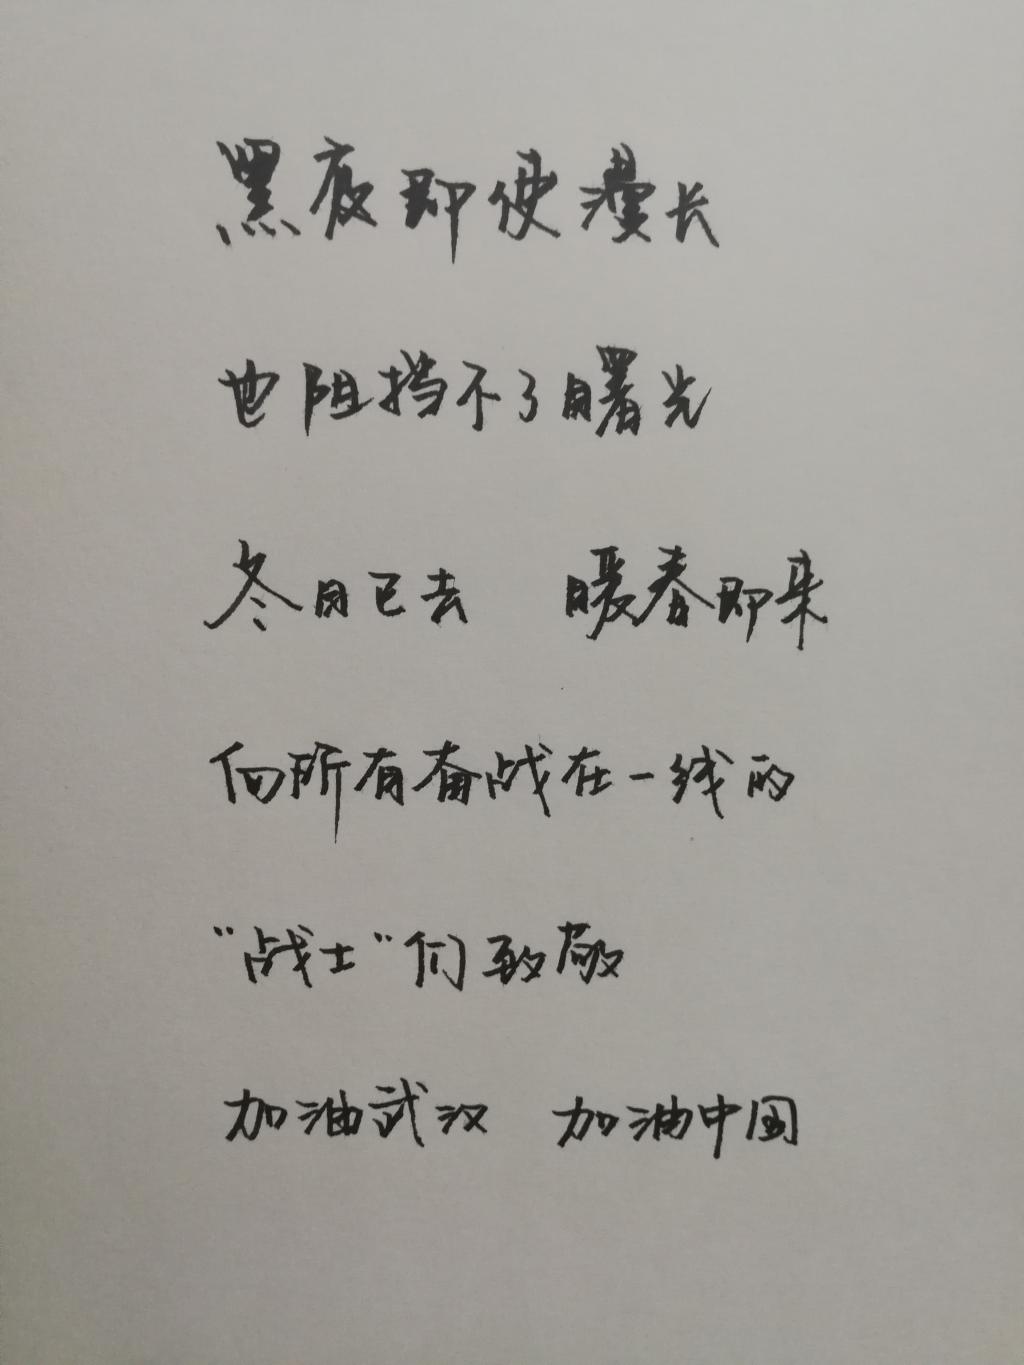 黑夜即使漫长
也阻挡不了曙光
冬日已去 暖春即来
向所有奋战在一线的
“战士”们致敬
加油武汉 加油中国